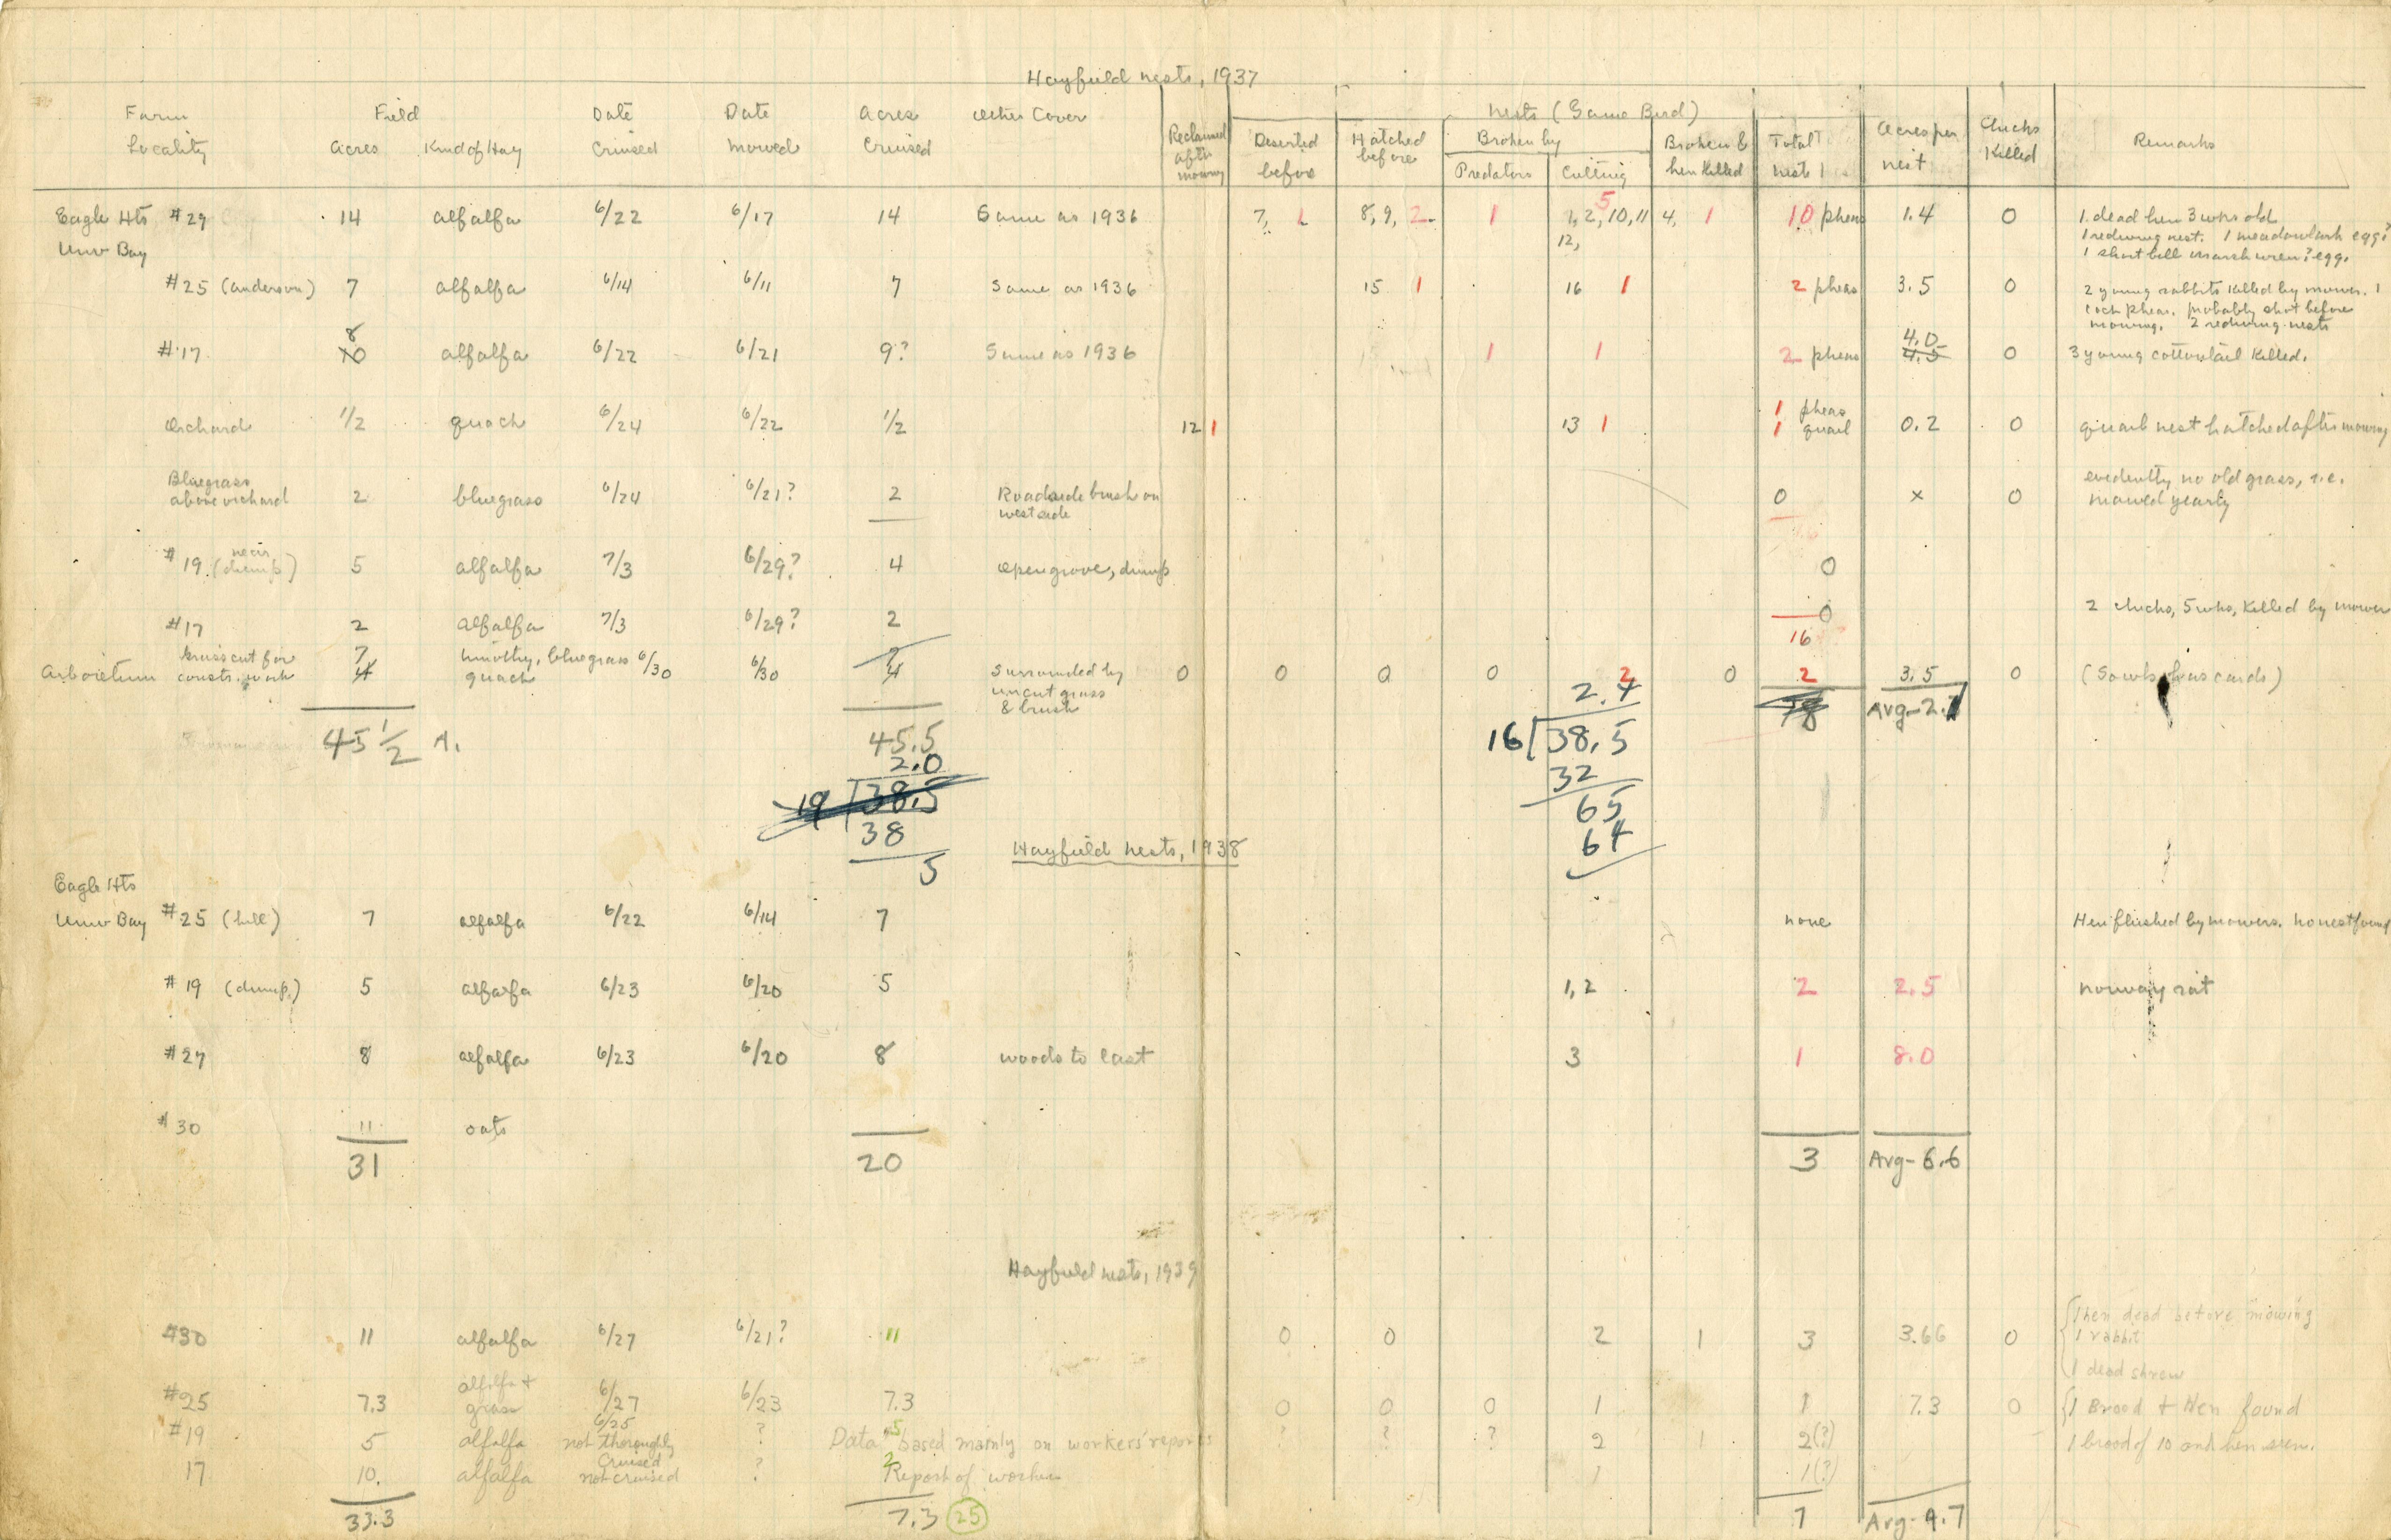 Hayfield nests, 1937
Farm Field Date Date Acres Other Cover Nests (Game Bird) Acres per Chicks
Locality Acres Kind of Hay Cruised Mowed Cruised Reclaimed after mowing Deserted before Hatched before Broken by Predators Cutting Broken & hen killed Total nests nest Killed Remarks
Eagle Hts #29 14 alfalfa 6/22 6/17 14 Same as 1936 7, 1 8, 9, 2 1 5 1, 2, 10, 11 4, 1 10 pheas 1.4 0 1 dead hen 3 wks old
Univ Bay 12, 1 redwing nest. 1 meadowlark egg?
1 short bill marsh wren? egg.
#25 (Anderson) 7 alfalfa 6/14 6/11 7 Same as 1936 15 1 16 1 2 pheas 3.5 0 2 young rabbits killed by mower. 1
cock pheas. probably shot before
mowing. 2 redwing nests
8 4.0
#17 10 alfalfa 6/22 6/21 9? Same as 1936 1 1 2 pheas 4.5 0 3 young cottontail killed.
1 pheas
Orchard 1/2 quack 6/24 6/22 1/2 12 1 13 1 1 quail 0.2 0 quail nest hatched after mowing
Bluegrass evidently no old grass, i.e.
above orchard 2 bluegrass 6/24 6/21? 2 Roadside brush on 0 x 0 mowed yearly
west side
#19 (near dump) 5 alfalfa 7/3 6/29? 4 open grove, dump 0
#17 2 alfalfa 7/3 6/29? 2 0 2 chicks, 5 wks, killed by mower
16
Grass cut for 7 timothy, bluegrass 7
Arboretum constr. work 4 quack 6/30 6/30 4 Surrounded by 0 0 0 0 2 0 2 3.5 0
uncut grass
& brush
18 Avg-2.1
45 1/2 A. 45.5
2.4
16 38.5
32
65
64
2.0
19 38.5
38
5
Hayfield nests, 1938
Eagle Hts
Univ Bay #25 (hill) 7 alfalfa 6/22 6/14 7 none Hen flushed by mowers. no nest found
#19 (dump) 5 alfalfa 6/23 6/20 5 1, 2 2 2.5 norway rat
#27 8 alfalfa 6/23 6/20 8 woods to east 3 1 8.0
#30 11 oats
31 20 3 Avg-6.6
Hayfield nests, 1939
1 hen dead before mowing
#30 11 alfalfa 6/27 6/21? 11 0 0 2 1 3 3.66 0 1 rabbit
1 dead shrew
#25 7.3 alfalfa + grass 6/27 6/23 7.3 0 0 0 1 1 7.3 0 1 Brood + Hen found
#19 5 alfalfa 6/25 not thoroughly cruised ? 5 Data based mainly on workers' reports ? ? ? 2 1 2(?) 1 brood of 10 and hen seen.
17 10. alfalfa not cruised ? 2 Report of worker 1 1(?)
33.3 7.3 25 7 Avg-4.7